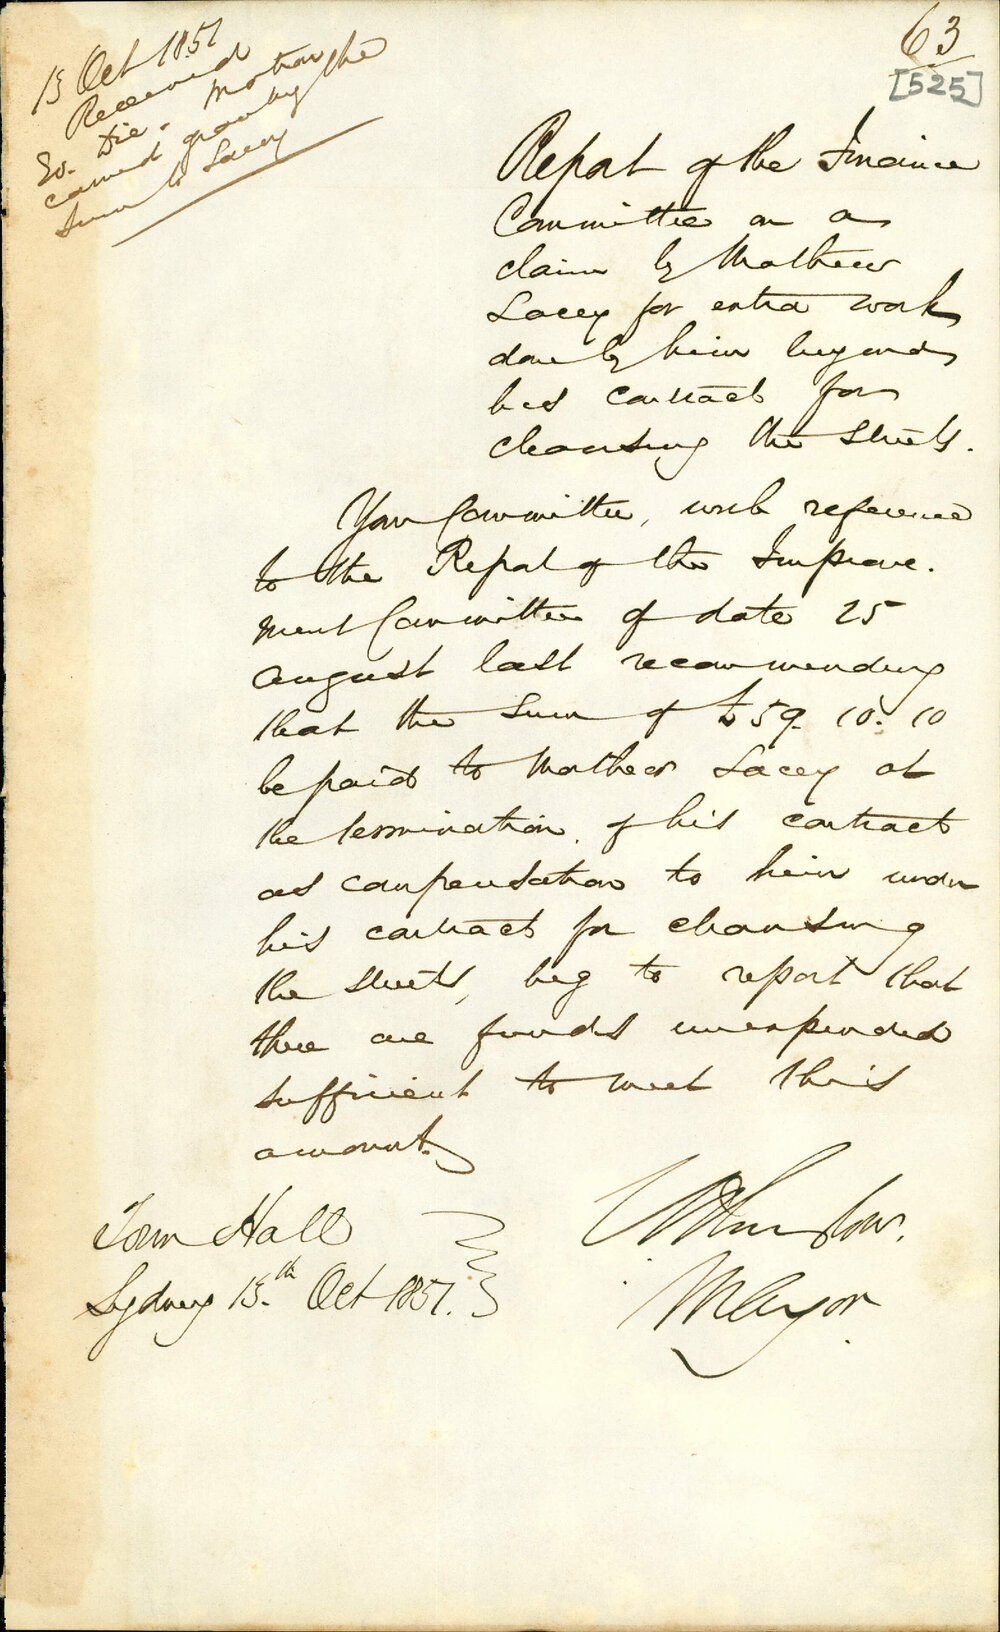 63
[525]
15 Oct 1851
Received
Eo. Die. Motion
carried granting the
Sum to Lacey
Report of the Finance
Committee on a
claim by Mathew
Lacey for extra work
done by him beyond
his contract for
cleansing the Streets.
Your Committee, with reference
to the Report of the Improve-
ment Committee of date 25
August last recommending
that the Sum of £59. 10. 10
be paid to Mathew Lacey at
the termination of his contract
as compensation to him under
his contract for cleansing
the Streets, beg to report that
there are funds unexpended
sufficient to meet this
amount.
Town Hall
Sydney 15th Oct 1851.
Mayor